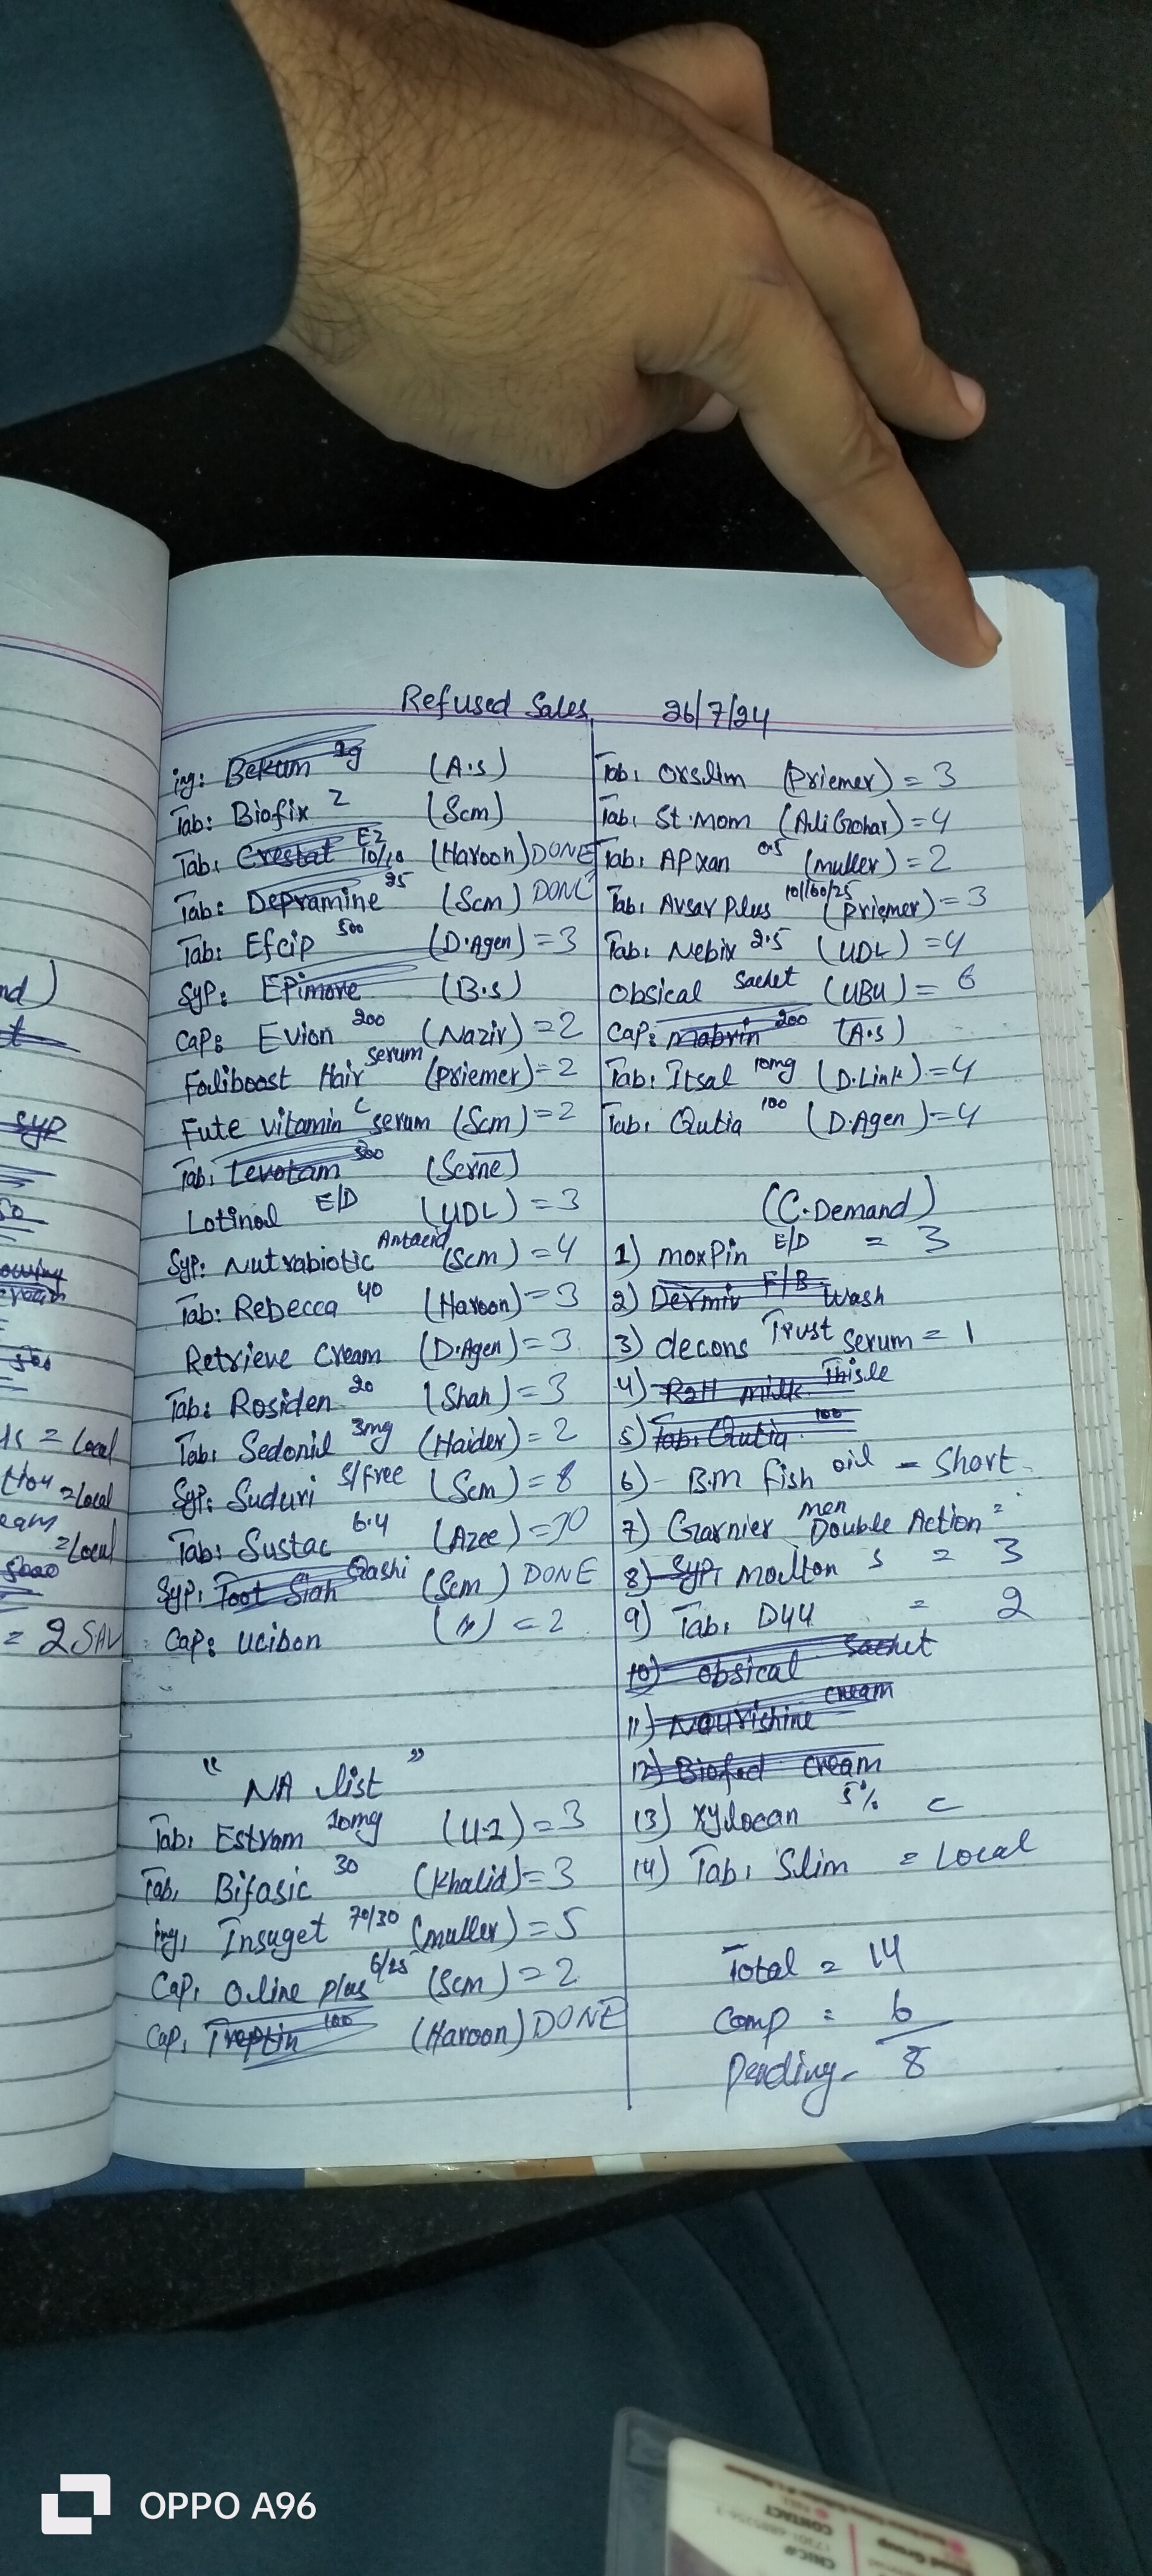 Refused Sales 26/7/24
inj: Bekum 1g (A.s)
Tab: Biofix 2 (Scm)
Tab: Crestat Ez 10/10 (Haroon) DONE
Tab: Depramine 25 (Scm) DONE
Tab: Efcip 500 (D.Agen) = 3
Syp: Epimore (B.s)
Cap: Evion 200 (Nazir) = 2
Foliboost Hair serum (Priemer) = 2
Fute vitamin C serum (Scm) = 2
Tab: Levotam 500 (Serne)
Lotinal E/D (UDL) = 3
Syp: Nutrabiotic Antacid (Scm) = 4
Tab: Rebecca 40 (Haroon) = 3
Retrieve Cream (D.Agen) = 3
Tab: Rosiden 20 (Shah) = 3
Tab: Sedonil 3mg (Haider) = 2
Syp: Suduri S/free (Scm) = 8
Tab: Sustac 6.4 (Azee) = 10
Syp: Toot Siah Qashi (Scm) DONE
Cap: Ucibon (") = 2
" NA list "
Tab: Estram 10mg (U.1) = 3
Tab, Bifasic 30 (Khalid) = 3
inj, Insuget 70/30 (muller) = 5
Cap, Oline plus 6/25 (Scm) = 2
Cap, Treptin 100 (Haroon) DONE
Tab, Orslim (Priemer) = 3
Tab, St.Mom (Ali Gohar) = 4
Tab, APxan 0.5 (muller) = 2
Tab, Avsar plus 10/160/25 (Priemer) = 3
Tab, Nebix 2.5 (UDL) = 4
Obsical Sachet (UBU) = 6
Cap: Mabrin 200 (A.s)
Tab: Itsal 10mg (D.Link) = 4
Tab, Qutia 100 (D.Agen) = 4
(C.Demand)
1) moxPin E/D = 3
2) Dermiv F/B Wash
3) decons Trust Serum = 1
4) milk Thisle
5) Tab: Qutia 100
6) - B.M fish oil - Short
7) Garnier men Double Action =
8) Syp, Moilton S = 3
9) Tab, D44 = 2
10) Obsical Sachet
11) Nourishine cream
12) cream
13) Xylocan 5% =
14) Tab, Slim = Local
Total = 14
Comp = 6
Pending - 8
nd)
Syp
= Local
= Local
eam = Local
= 2 SAV
OPPO A96
CONTACT
CNIC#